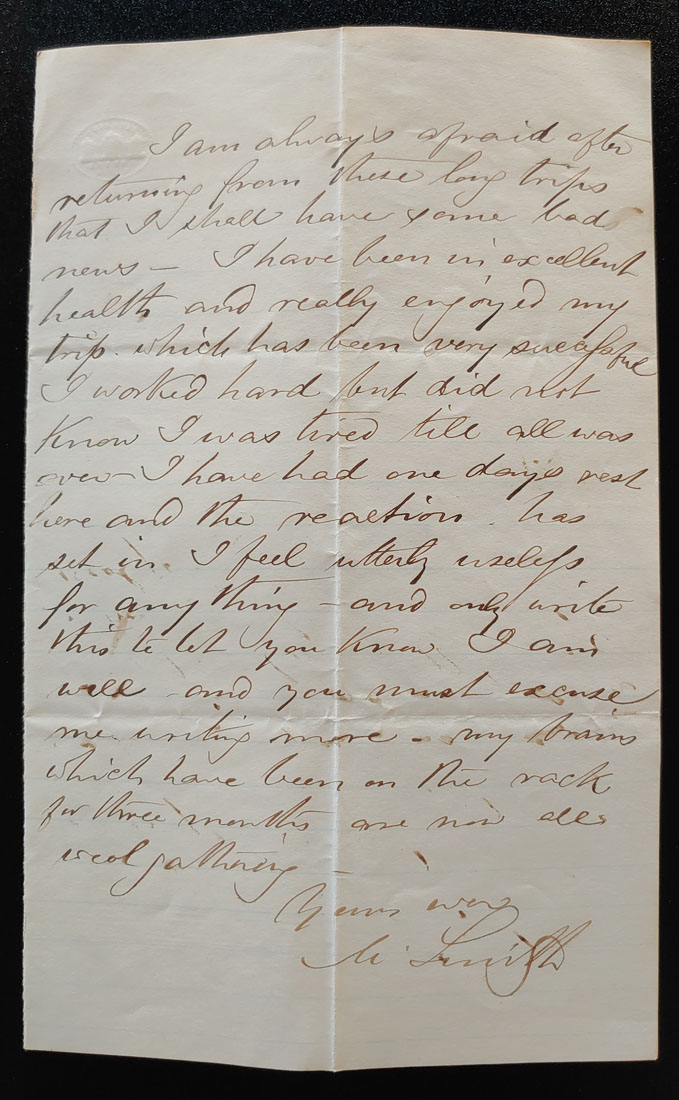 I am always afraid after
returning from these long trips
that I shall have some bad
news — I have been in excellent
health and really enjoyed my
trip. which has been very successful
I worked hard but did not
know I was tired till all was
over — I have had one days rest
here and the reaction. has
set in I feel utterly useless
for any thing — and only write
this to let you know I am
well and you must excuse
me writing more — my brains
which have been on the rack
for three months are now all
wool gathering —
Yours ever
Smith